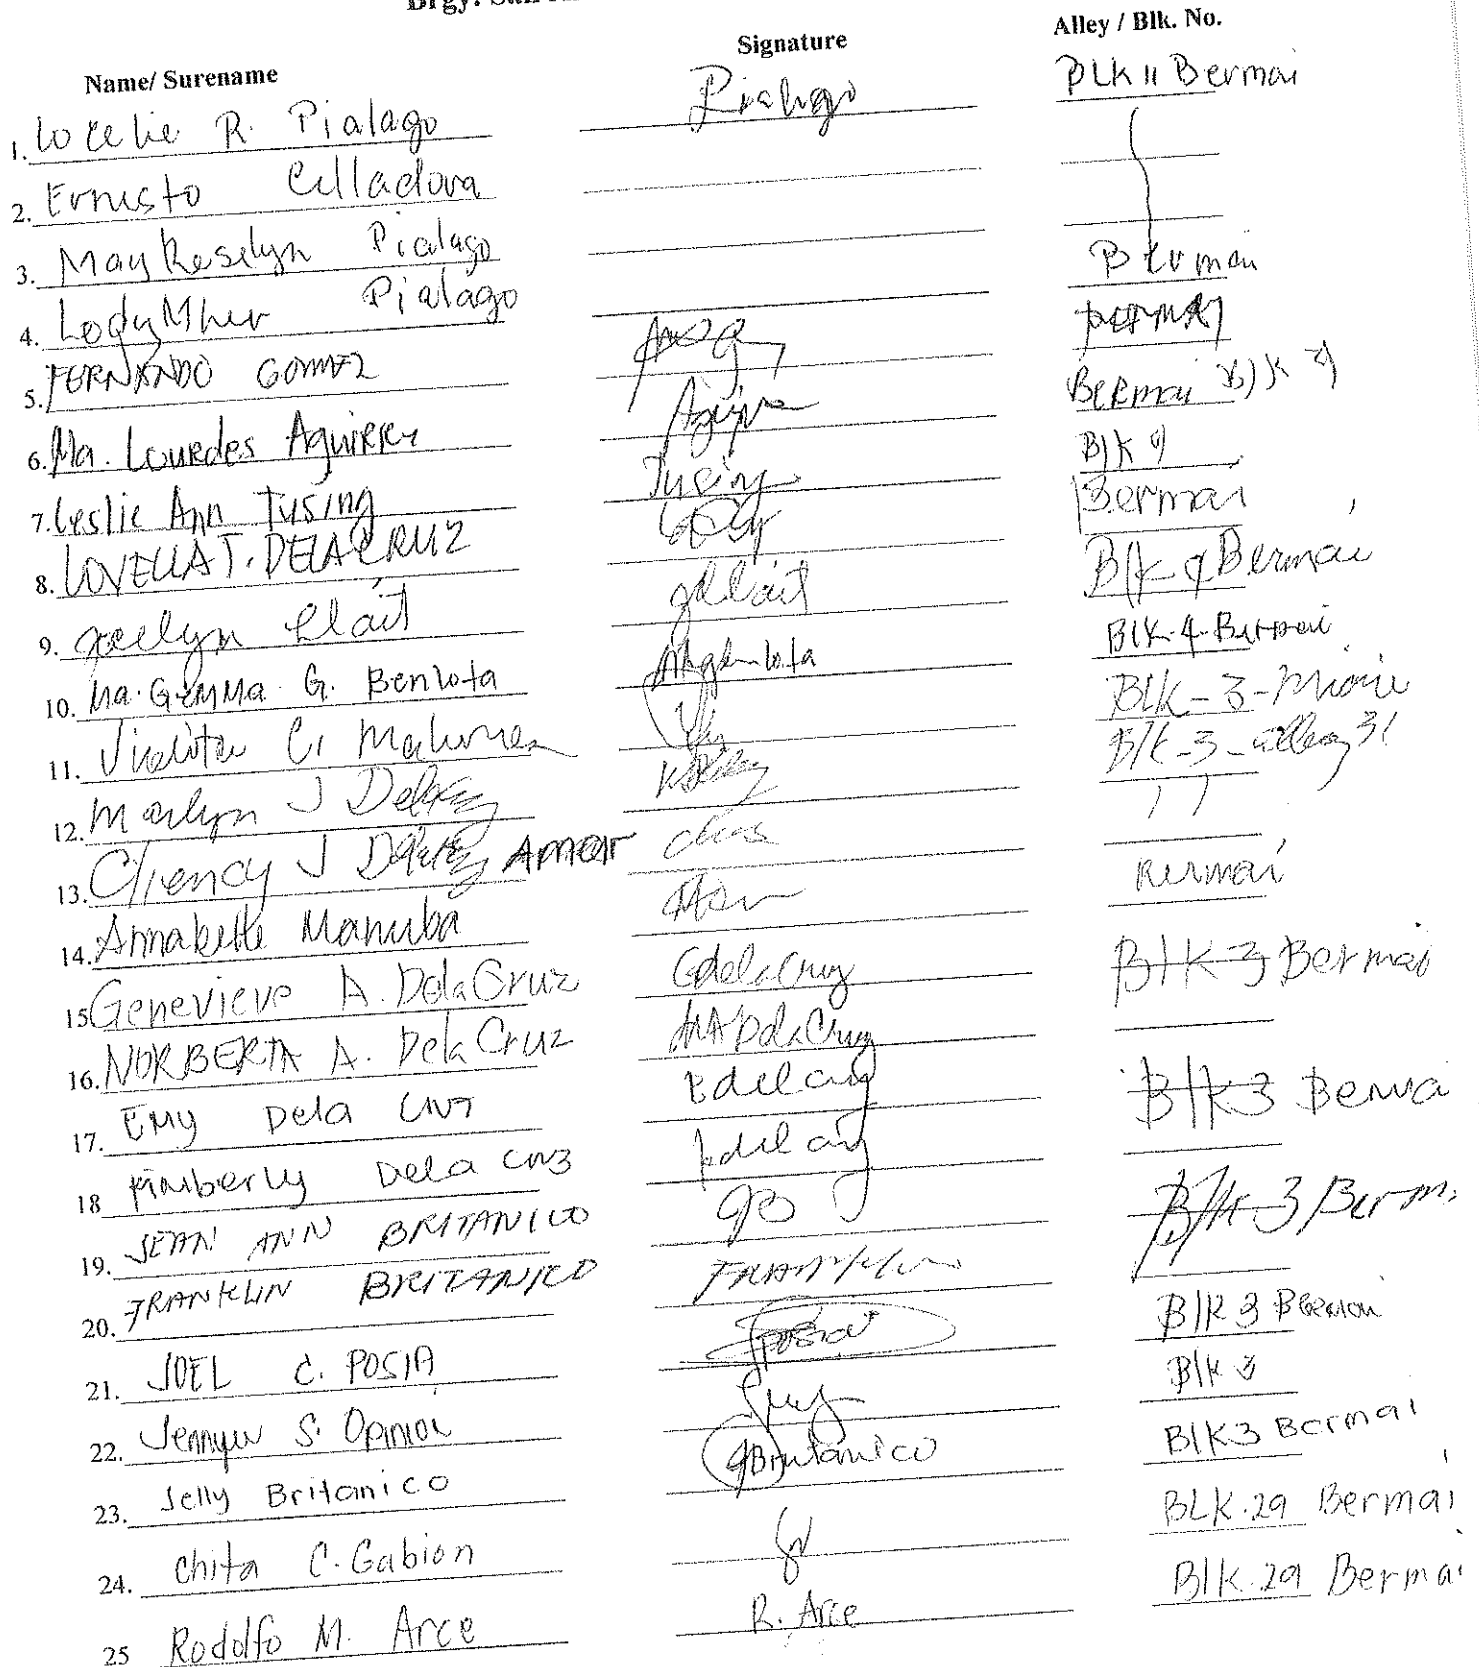 Brgy. San
Name/ Surename Signature Alley / Blk. No.
1. R. Pialago Pialago BLK 11 Bermai
2. Ernesto Celladova
3. May Roselyn Pialago Bermai
4. Lody Mher Pialago Bermai
5. FERNANDO GOMEZ Bermai Blk 9
6. Ma. Lourdes Aguirre Blk 9
7. Leslie Ann Tusing Tusing Bermai
8. LOVELLA T. DELA CRUZ Blk 9 Bermai
9. Jocelyn Elait JElait Blk-4-Bermai
10. Ma. Gemma G. Benlota Blk-3-
11. Violita C. Blk-3-alley 31
12. Marlyn J Dela Cruz
13. J Dela Cruz Bermai
14. Annabelle Manuba
15 Genevieve A. Dela Cruz Gdelacruz Blk 3 Bermai
16. NORBERTA A. Dela Cruz NADelaCruz
17. Emy Dela Cruz Edelacruz Blk 3 Berma
18 Kimberly Dela Cruz kdelacruz
19. JEAN ANN BRITANICO JB Blk 3 Berm
20. FRANKLIN BRITANICO FRANKLIN
21. JOEL C. POSIA Posia Blk 3 Bermai
22. S. Opinion Blk 3
23. Jelly Britanico JBritanico Blk3 Bermai
24. Chita C. Gabion BLK.29 Bermai
25 Rodolfo M. Arce R. Arce Blk.29 Bermai